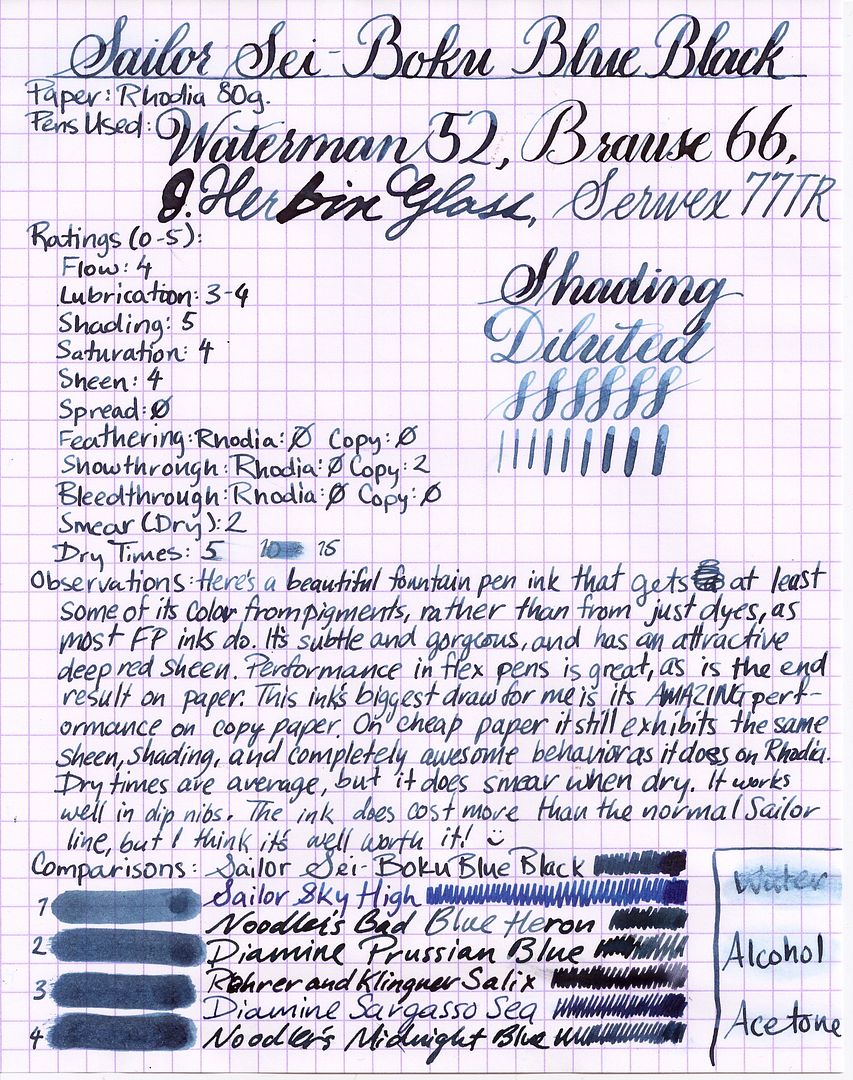 Sailor Sei-Boku Blue Black
Paper: Rhodia 80g.
Pens Used: Waterman 52, Brause 66,
J. Herbin Glass, Serwex 77TR
Ratings (0-5):
Flow: 4
Lubrication: 3-4
Shading: 5
Saturation: 4
Sheen: 4
Spread: Ø
Feathering: Rhodia: Ø Copy: Ø
Showthrough: Rhodia: Ø Copy: 2
Bleedthrough: Rhodia: Ø Copy: Ø
Smear (Dry): 2
Dry Times: 5 10 15
Shading
Diluted
Observations: Here's a beautiful fountain pen ink that gets at least
some of its color from pigments, rather than from just dyes, as
most FP inks do. It's subtle and gorgeous, and has an attractive
deep red sheen. Performance in flex pens is great, as is the end
result on paper. This ink's biggest draw for me is its AMAZING perf-
ormance on copy paper. On cheap paper it still exhibits the same
sheen, shading, and completely awesome behavior as it does on Rhodia.
Dry times are average, but it does smear when dry. It works
well in dip nibs. The ink does cost more than the normal Sailor
line, but I think it's well worth it!
Comparisons: Sailor Sei-Boku Blue Black
Sailor Sky High
Noodler's Bad Blue Heron
Diamine Prussian Blue
Rohrer and Klingner Salix
Diamine Sargasso Sea
Noodler's Midnight Blue
1
2
3
4
Water
Alcohol
Acetone